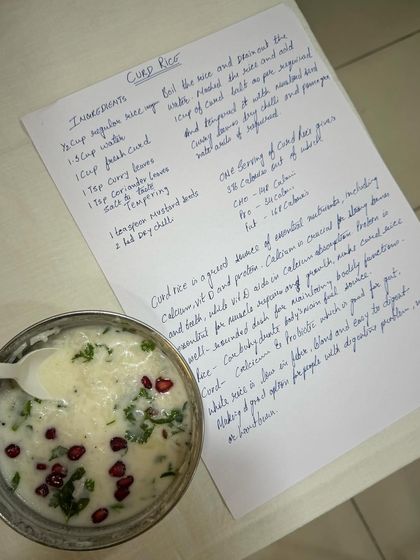 CURD RICE
INGREDIENTS
1/2 Cup regular rice
1.5 Cup water
1 Cup fresh Curd
1 Tsp Curry leaves
1 Tsp Coriander leaves
Salt to taste
TEMPERING
1 teaspoon Mustard seeds
2 Red Dry chilli
Boil the rice and drain out the
water. Mashed the rice and add
1 Cup of Curd. Salt as per required
And tempered it with mustard seed
Curry leaves dry chilli and pomegr
nate seeds if required.
ONE Serving of Curd Rice gives
Calories out of which
CHO - Calori
Pro - Calori
Fat - Calories
Curd rice is a good source of essential nutrients, including
Calcium, Vit D and protein. Calcium is crucial for strong bones
and teeth, while Vit D aids in Calcium absorption. Protein is
essential for muscle repair and growth, make curd rice
well-rounded dish for maintaining bodily functions.
Rice - Carbohydrate body's main fuel source.
Curd - Calcium & Probiotic which is good for gut.
White rice is low in fibre, bland and easy to digest
Making it good option for people with digestive problem,
or heartburn.